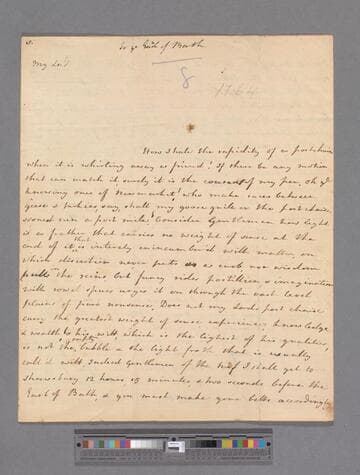 3.
To ye Earl of Bath
8
1764
My Lord
How I hate the rapidity of a postchaise
when it is whirling away a friend! If there be any motion
that can match it surely it is the course of my pen, oh ye
knowing ones of Newmarket! who make races between
Geese & turkies say, shall my goose quill or the Post chaise
soonest run a post mile? Consider Gentlemen how light
is a feather that carries no weight of sense at the
end of it, that is intirely unincumber'd with matter, on
which discretion never puts a curb, nor wisdom
pulls the reins but fancy rides postillion, & imagination
with vowel spurs urges it on through the vast level
plains of pure nonsense. Does not my Lords post chaise
carry the greatest weight of sense experience knowledge
& wealth & his wit, which is the lightest of his qualities,
is not the empty bubble & the light froth that is usually
call'd wit. Indeed Gentlemen of the turf I shall get to
Shrewsbury 12 hours 15 minutes & two seconds before the
Earl of Bath & you must make your betts accordingly